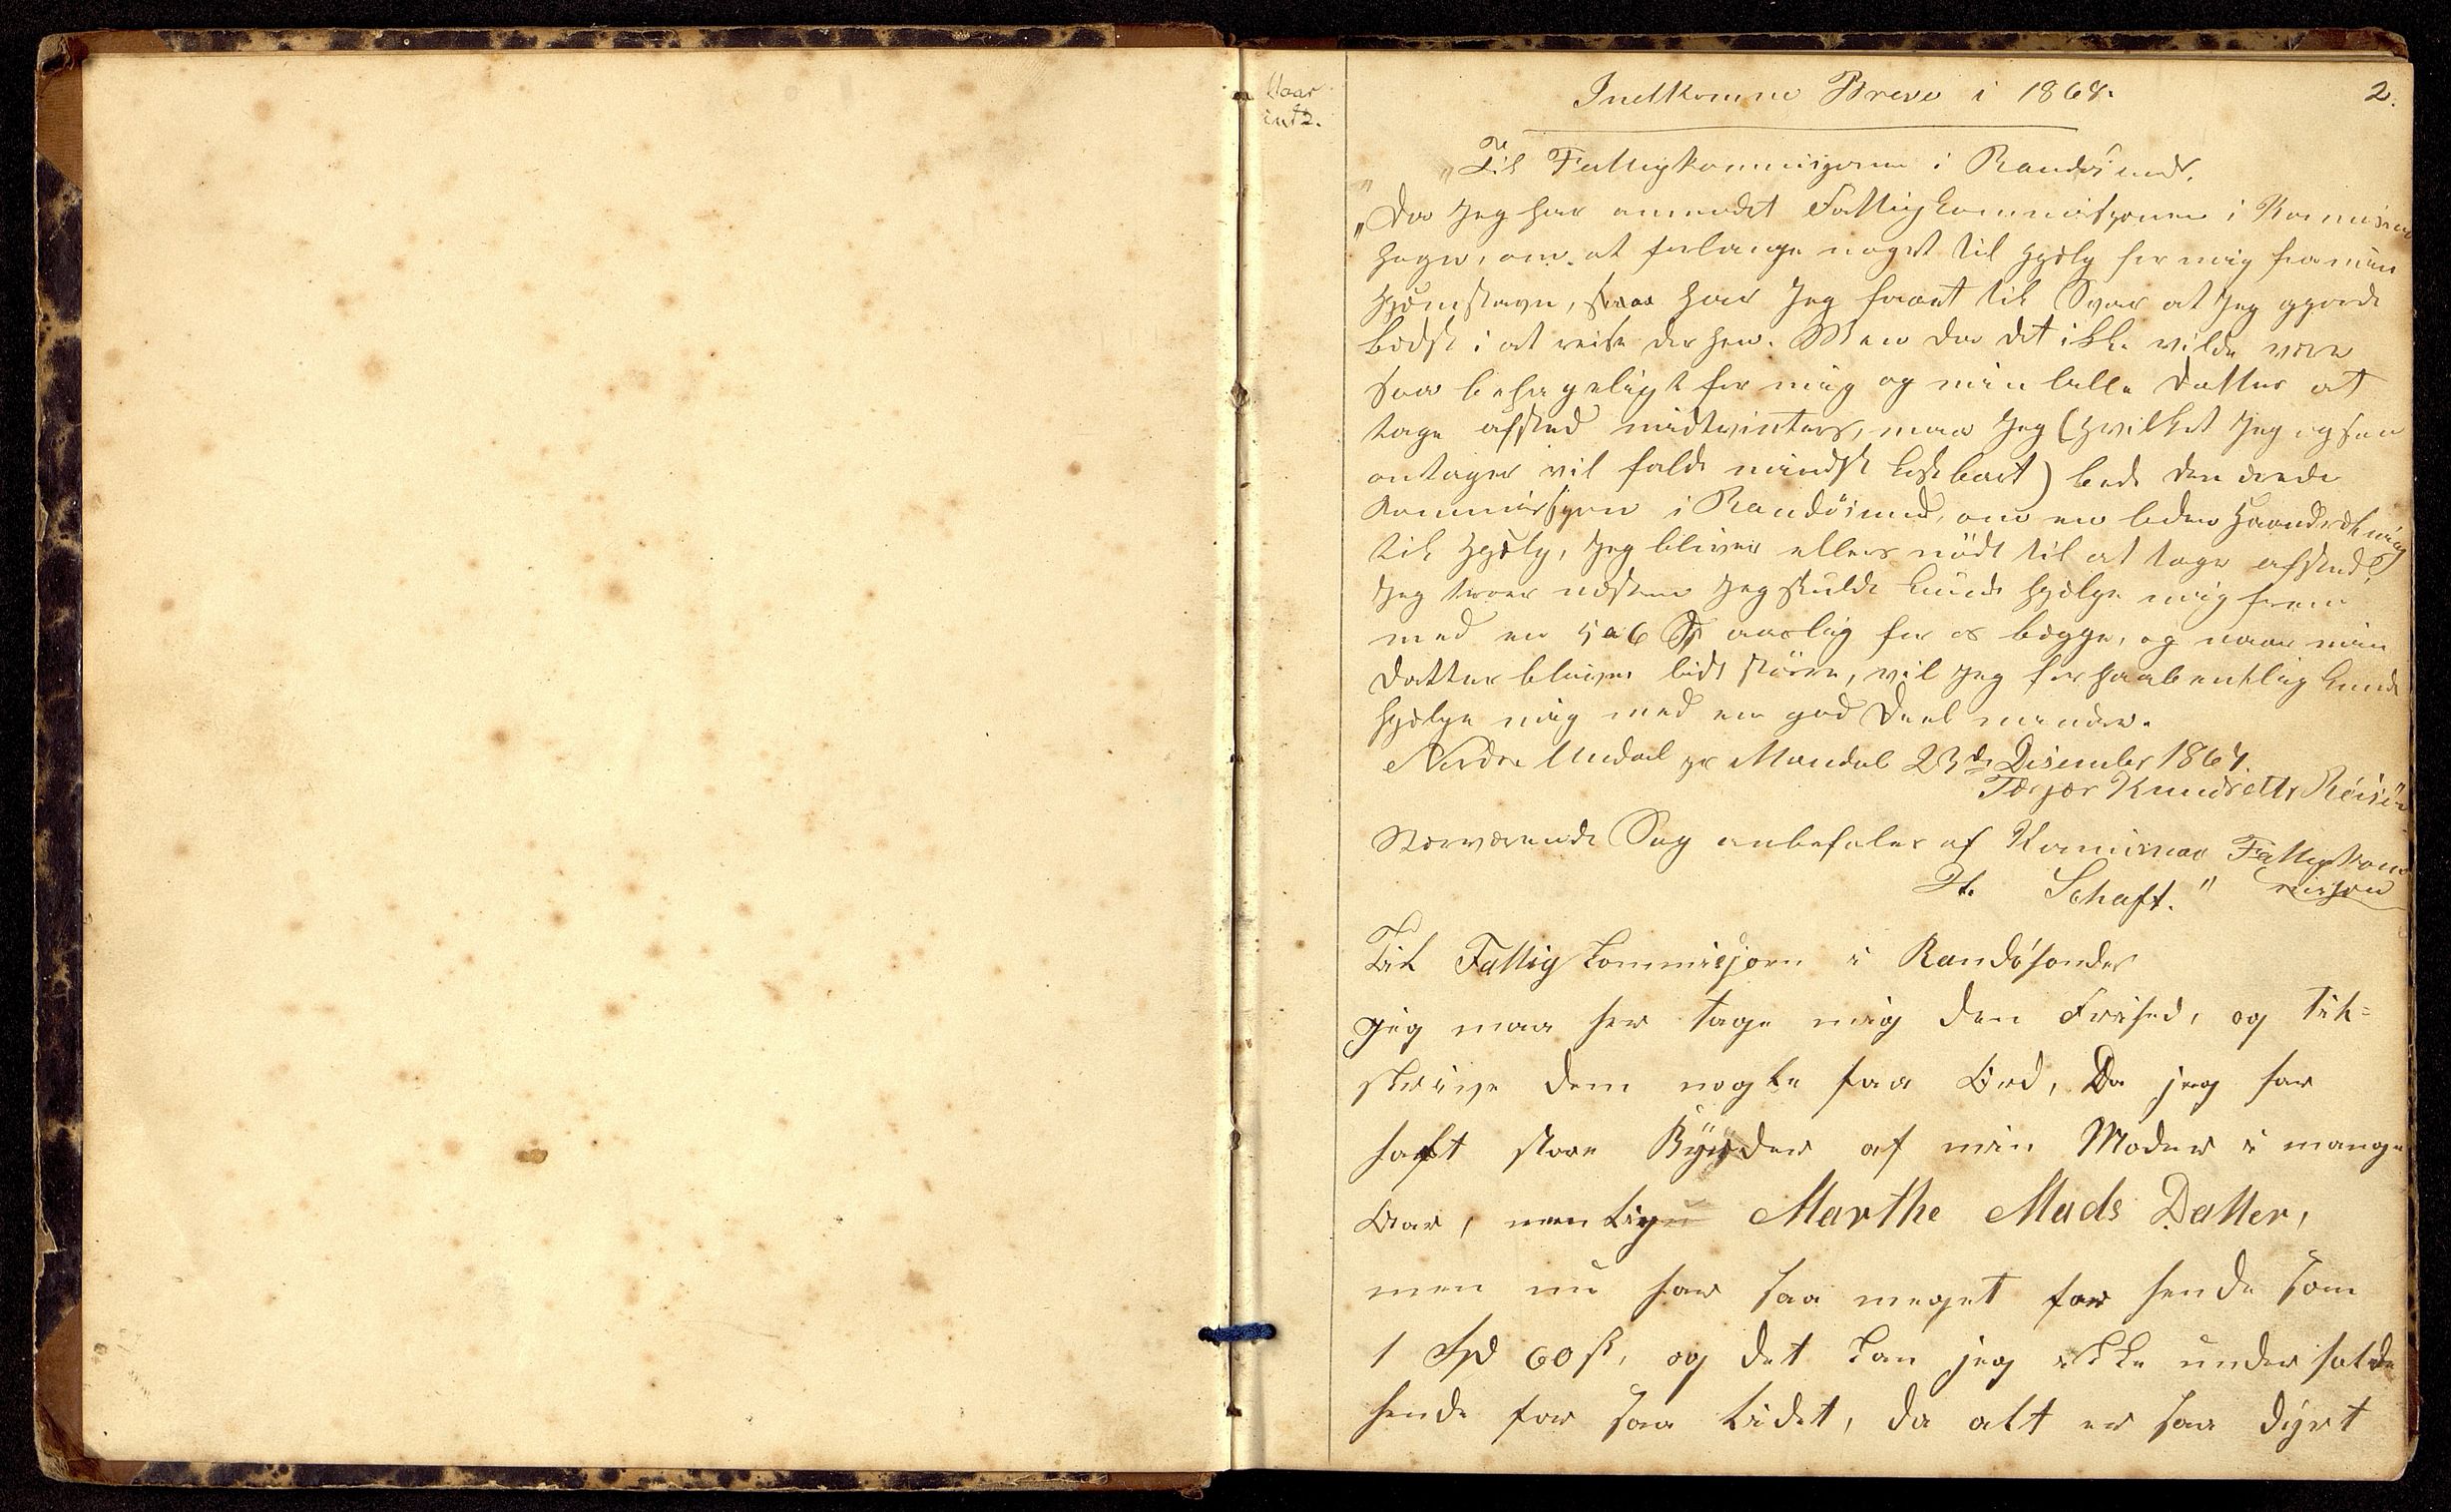 Indkomne Breve i 1868.
2.
"Til Fattigkommisjonen i Randøsund.
"Da Jeg har anmodet Fattigkommissjonen i
Hægn, om at forlange noget til Hjelp for mig fra min
Hjemstavn, saa har Jeg faaet til Svar at Jeg gjorde
bedst i at reise der hen. Men da det ikke vilde være
saa behageligt for mig og min lille Datter at
tage afsted midtvinters, maa Jeg (hvilket Jeg ogsaa
antager vil falde mindst kostbart) bede den ærede
Kommissjon i Randøsund, om en liden Haandrekning
til Hjelp, Jeg bliver ellers nødt til at tage afsted,
Jeg troer næsten Jeg skulde kunde hjelpe mig frem
med en 5 a 6 Spd aarlig for os begge, og naar min
Datter bliver lidt større, vil Jeg forhaabentlig kunde
hjelpe mig med en god Deel mindre.
Nordre Undal pr Mandal 23de Desember 1867.
Tærjer Knudsdttr
Nærværende Sag anbefales af Fattigkom
misjon
H. Schaft."
Til Fattigkommisjoen i Randøsunder
Jeg maa her tage mig den Frihed, og til=
skrive dem nogle faa Ord, Da jeg har
haft store Byrder af min Moder i mange
Aar, nemlig Marthe Mads Datter,
men nu har saa meget for hende som
1 Spd 60 s, og det kan jeg ikke underholde
hende for saa lidet, da alt er saa dyrt